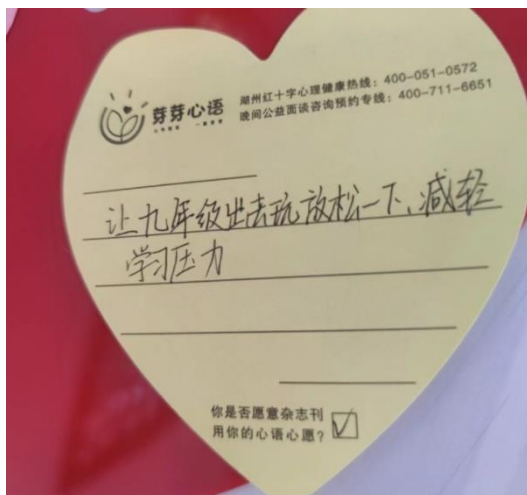 芽芽心语
湖州红十字心理健康热线：400-051-0572
晚间公益面谈咨询预约专线：400-711-6651
让九年级出去玩放松一下、减轻
学习压力
你是否愿意杂志刊
用你的心语心愿？